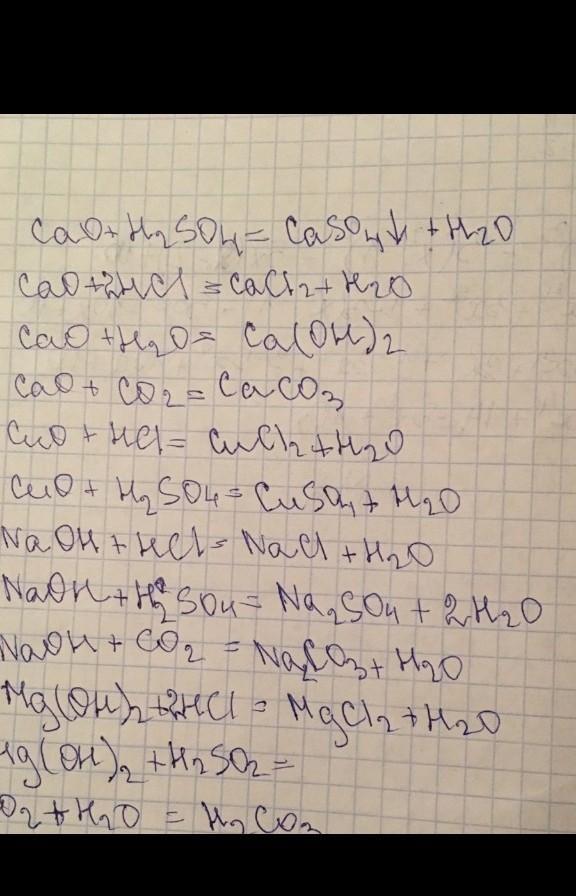 CaO+H₂SO₄= CaSO₄↓ +H₂O
CaO+2HCl =CaCl₂+H₂O
CaO +H₂O= Ca(OH)₂
CaO + CO₂=CaCO₃
CuO + HCl= CuCl₂+H₂O
CuO + H₂SO₄=CuSO₄+ H₂O
NaOH +HCl= NaCl +H₂O
NaOH +H₂SO₄= Na₂SO₄ + 2H₂O
NaOH + CO₂ = Na₂CO₃+ H₂O
Mg(OH)₂+2HCl = MgCl₂+H₂O
Mg(OH)₂ +H₂SO₂=
O₂ +H₂O = H₂CO₃